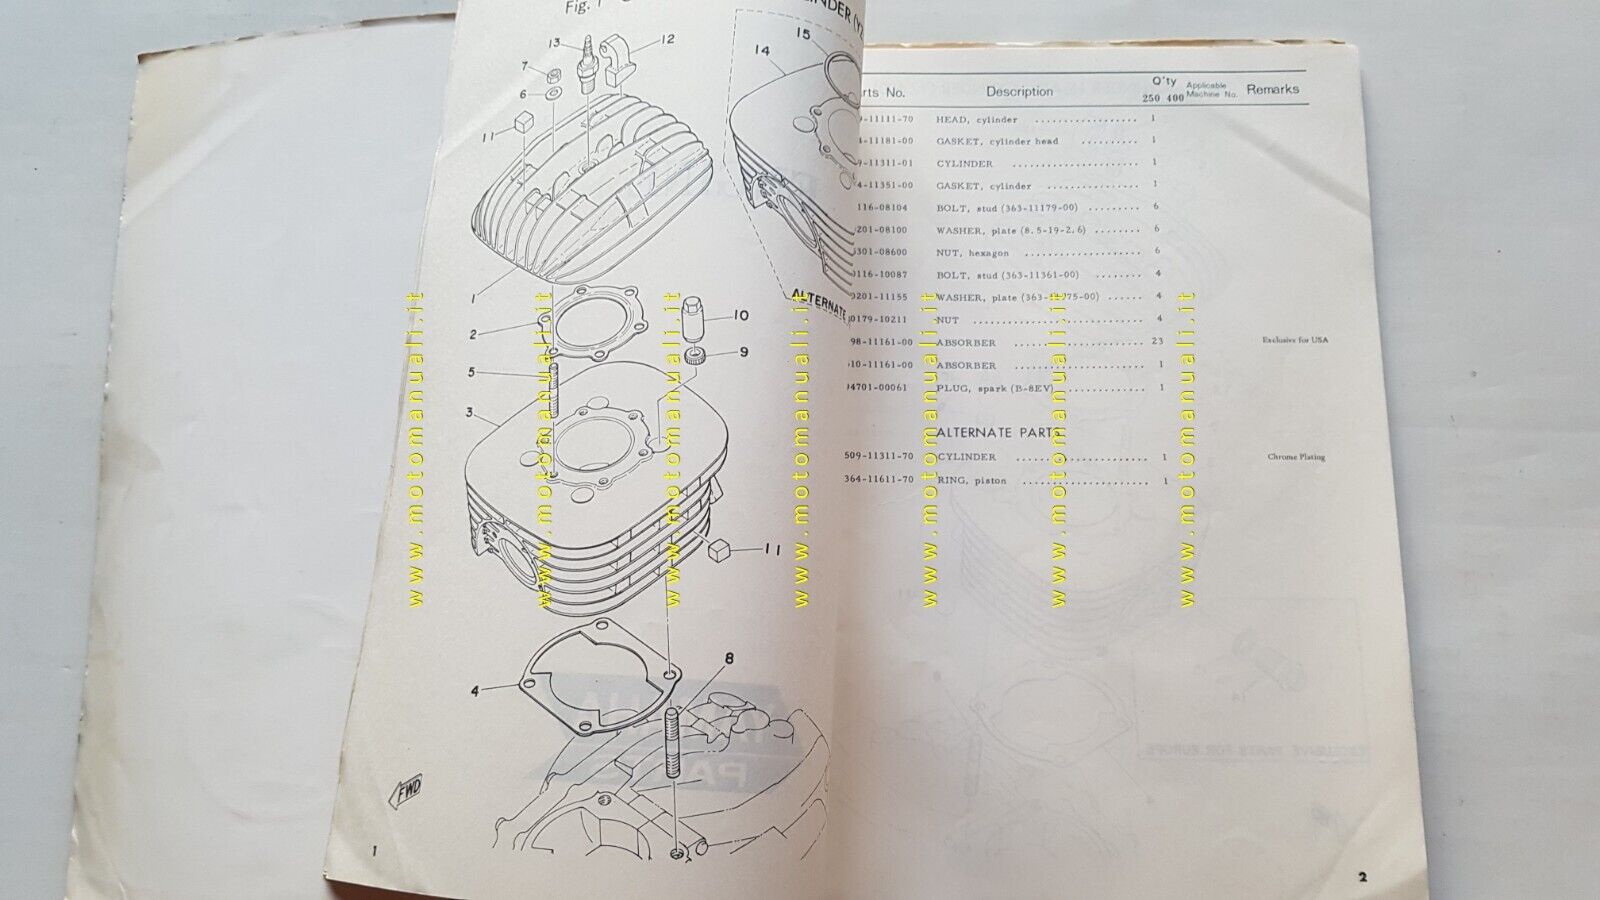 Fig. 1
CYLINDER (YZ
13
12
7
6
11
15
14
1
2
10
9
5
3
ALTERNATE
11
4
8
FWD
1
Parts No. Description Q'ty Applicable Machine No. Remarks
250 400
-11111-70 HEAD, cylinder 1
-11181-00 GASKET, cylinder head 1
-11311-01 CYLINDER 1
-11351-00 GASKET, cylinder 1
116-08104 BOLT, stud (363-11179-00) 6
201-08100 WASHER, plate (8.5-19-2.6) 6
301-08600 NUT, hexagon 6
116-10087 BOLT, stud (363-11361-00) 4
0201-11155 WASHER, plate 4
0179-10211 NUT 4
98-11161-00 ABSORBER 23 Exclusive for USA
10-11161-00 ABSORBER 1
94701-00061 PLUG, spark (B-8EV) 1
ALTERNATE PARTS
509-11311-70 CYLINDER 1 Chrome Plating
364-11611-70 RING, piston 1
2
www.motomanuali.it
www.motomanuali.it
www.motomanuali.it
www.motomanuali.it
www.motomanuali.it
www.motomanuali.it
www.motomanuali.it